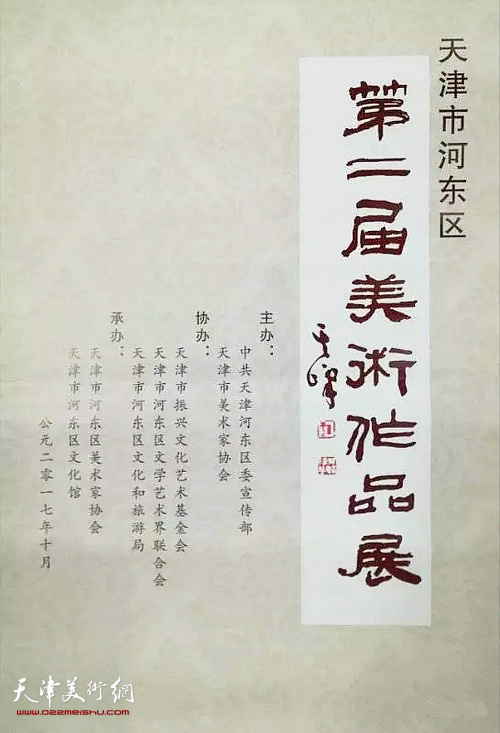 天津市河东区
第二届美術作品展
天津
主办：
中共天津河东区委宣传部
天津市美术家协会
协办：
天津市振兴文化艺术基金会
天津市河东区文学艺术界联合会
天津市河东区文化和旅游局
承办：
天津市河东区美术家协会
天津市河东区文化馆
公元二零一七年十月
天津美術網
www.022meishu.com